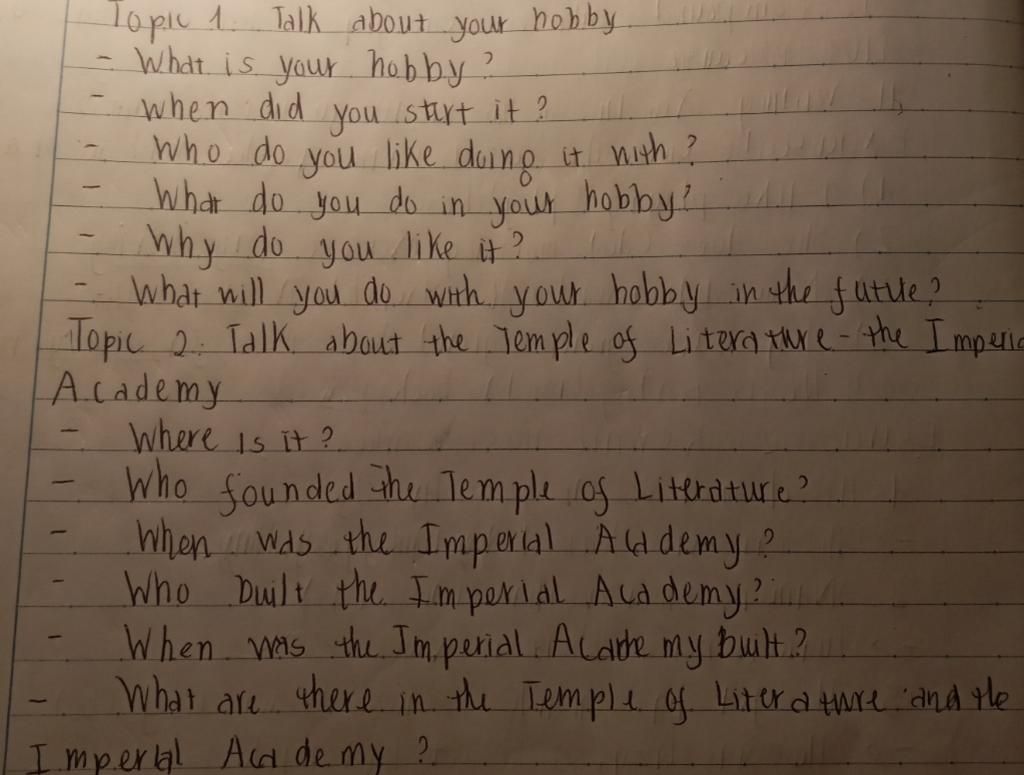 Topic 1. Talk about your hobby
- What is your hobby?
- When did you start it?
- Who do you like doing it with?
- What do you do in your hobby?
- Why do you like it?
- What will you do with your hobby in the future?
Topic 2: Talk about the Temple of Literature - the Imperia
Academy
- Where is it?
- Who founded the Temple of Literature?
- When was the Imperial Academy?
- Who built the Imperial Academy?
- When was the Imperial Academy built?
- What are there in the Temple of Literature and the
Imperial Academy?